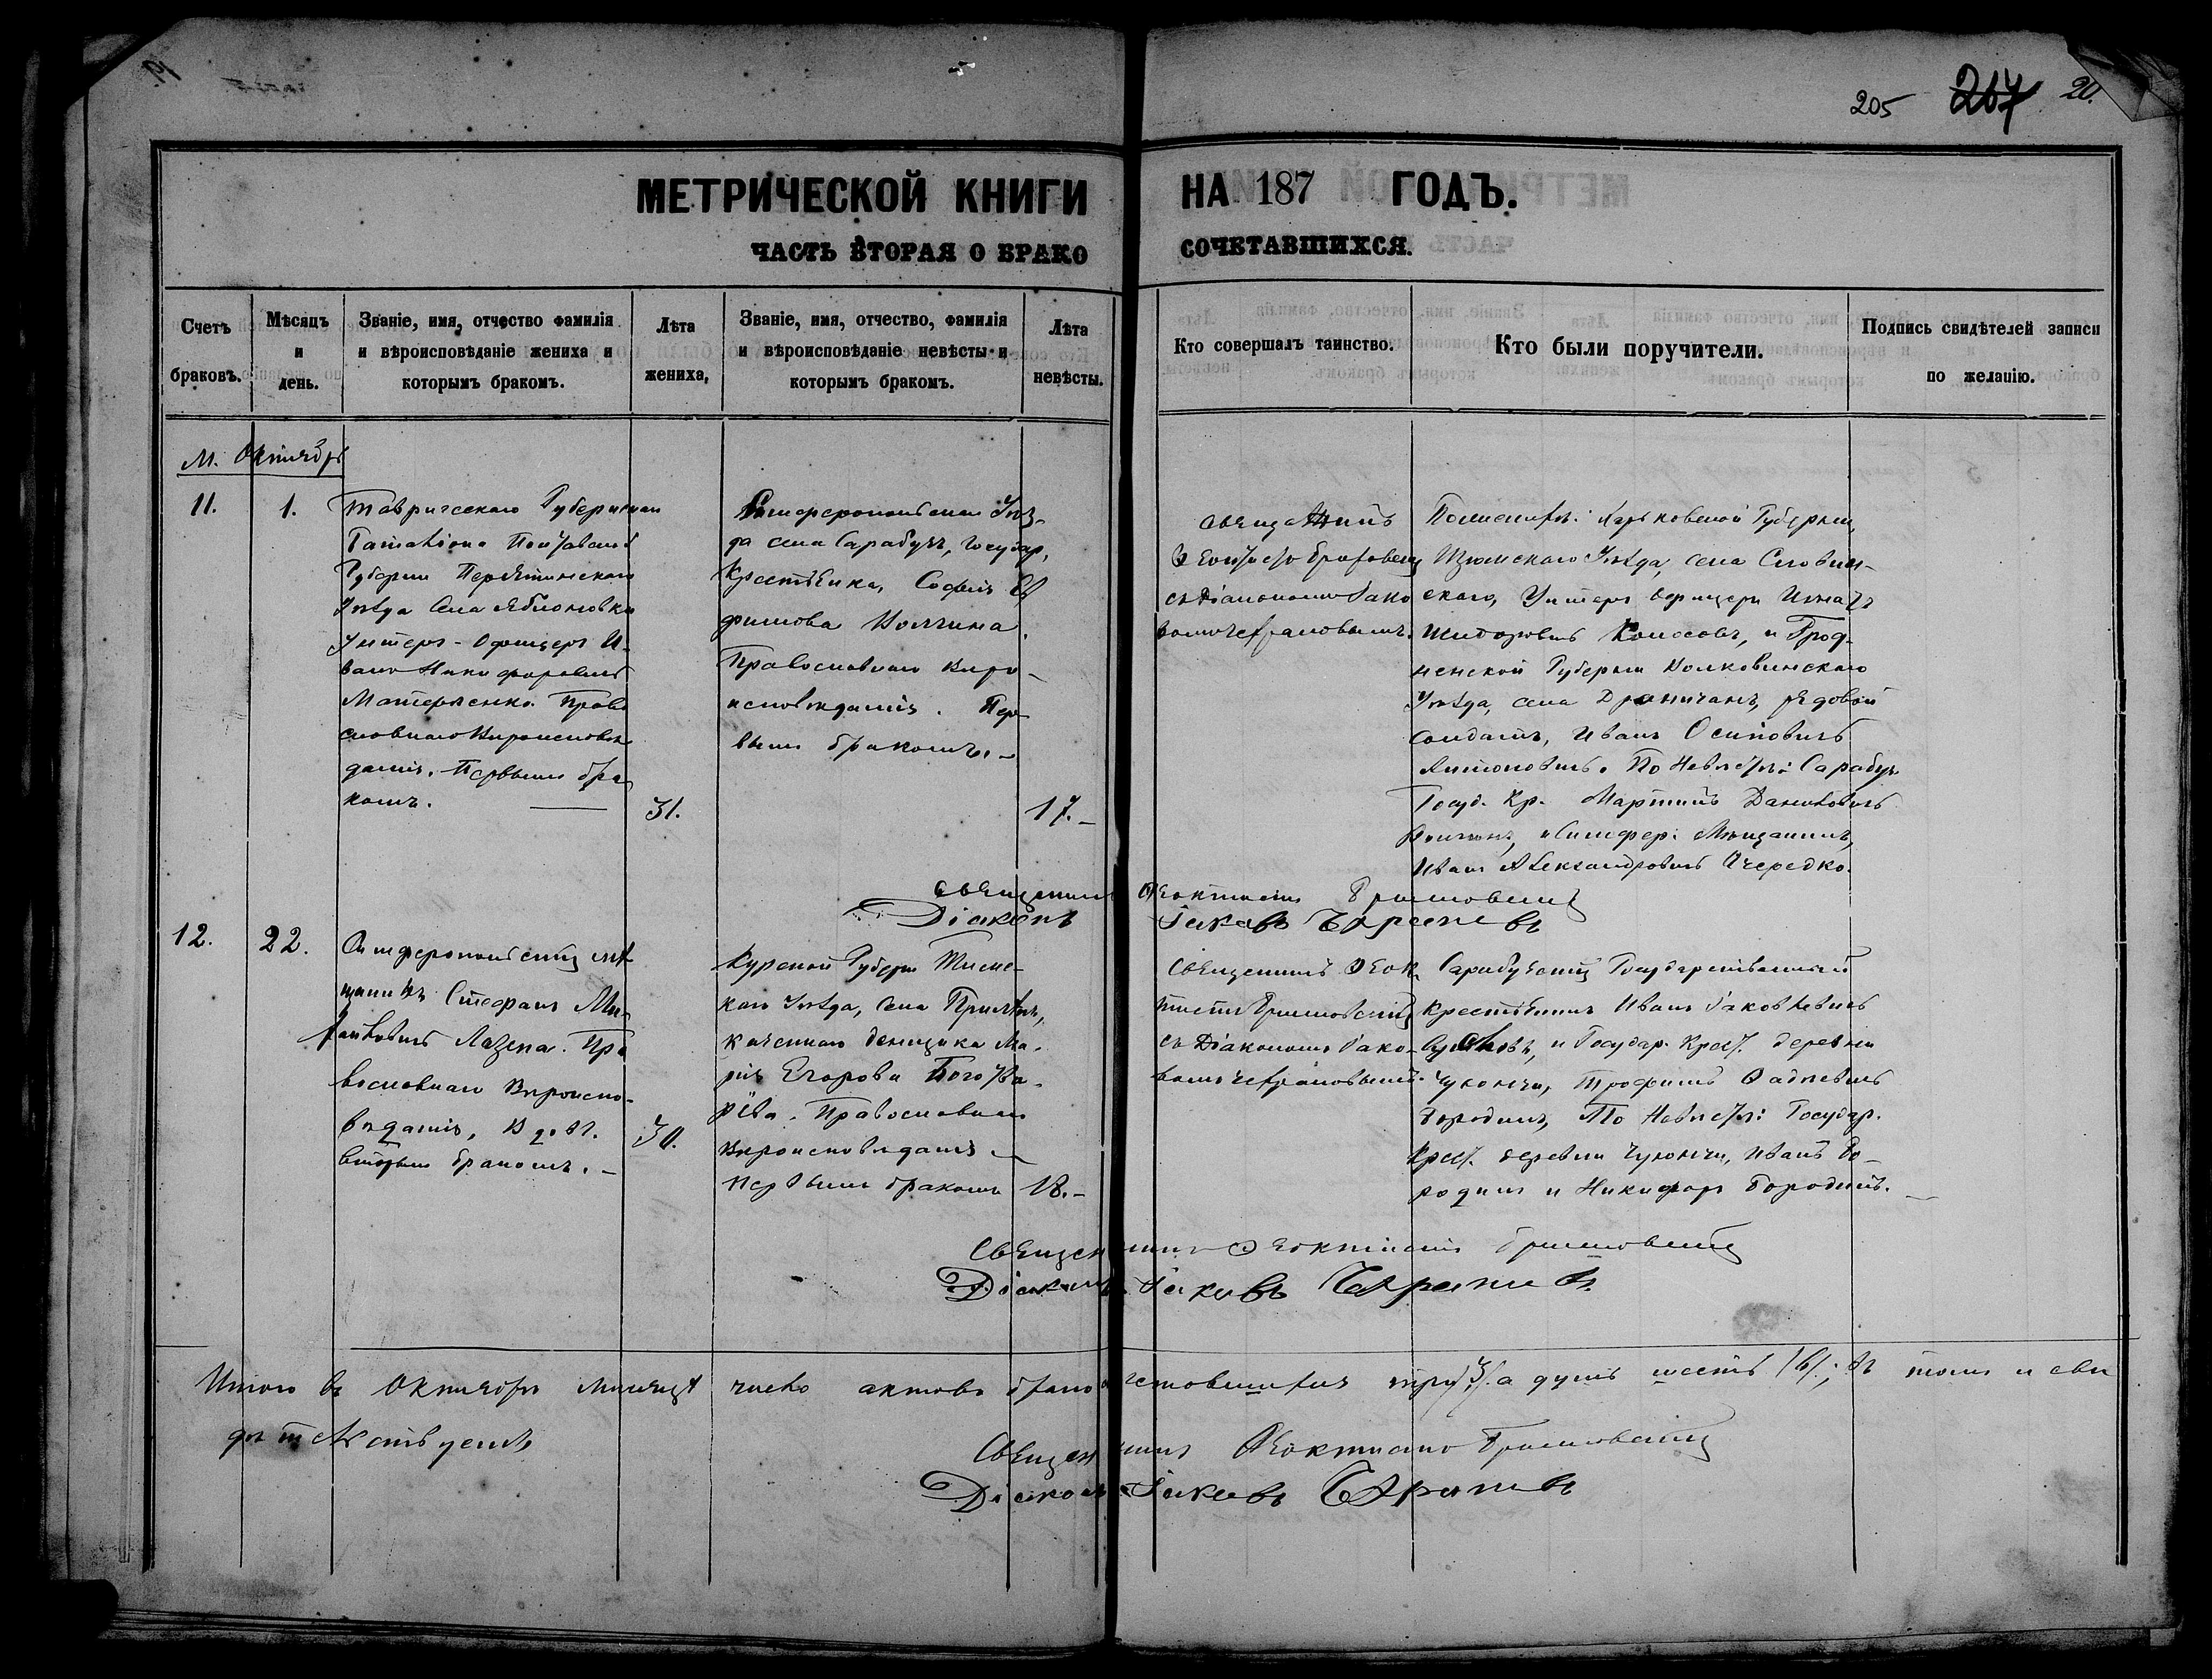 205 207 20.
МЕТРИЧЕСКОЙ КНИГИ НА 187 ГОДЪ.
ЧАСТЬ ВТОРАЯ О БРАКО СОЧЕТАВШИХСЯ.
Счетъ браковъ.
Мѣсяцъ и день.
Званіе, имя, отчество фамилія
и вѣроисповѣданіе жениха и
которымъ бракомъ.
Лѣта
жениха,
Званіе, имя, отчество, фамилія
и вѣроисповѣданіе невѣсты и
которымъ бракомъ.
Лѣта
невѣсты.
Кто совершалъ таинство.
Кто были поручители.
Подпись свидѣтелей записи
по желанію.
М. Октябрь
11.
1.
Таврическаго Губернскаго
Баталіона Полтавской
Губерніи Пирятинскаго
Уѣзда Села Яблоновки
Унтеръ-Офицеръ И-
ванъ Никифоровичъ
Матеріенко. Право
славнаго Вѣроисповѣ
данія. Первымъ бра
комъ.
31.
Симферопольскаго Уѣз-
да села Сарабузъ, Государ,
Крестьянка, Софія Ев
фимова Волчина.
Православнаго Вѣро-
исповѣданія. Пер
вымъ бракомъ.
17.
Священникъ
Ѳеоктистъ
съ Діакономъ Іако
вомъ
По женихѣ: Харьковской Губерніи,
Изюмскаго Уѣзда, села Славян-
скаго, Унтеръ Офицеръ Игнатъ
Колосовъ, и Грод-
ненской Губерніи Волковинскаго
Уѣзда, села рядовой
Солдатъ, Иванъ Осиповичъ
Антоновичъ. По Невѣстѣ: Сарабуз.
Госуд. Кр. Мартинъ Даниловичъ
Волчинъ, и Симфер. Мѣщанинъ,
Иванъ Александровичъ Очередко.
Священникъ Ѳеоктистъ
Діаконъ Іаковъ
12.
22.
Симферопольскій мѣ
щанинъ Стефанъ Ми-
хайловичъ Лазена. Пра
вославнаго Вѣроиспо-
вѣданія, Вдов.
вторымъ бракомъ.
30.
Курской Губерн Тимс-
каго Уѣзда, Села
денщика Ма-
рія Егорова
Православнаго
Вѣроисповѣданія
первымъ бракомъ
18.
Священникъ Ѳеок-
тистъ
съ Діакономъ Іако-
вомъ
Сарабузскій Государственный
крестьянинъ Иванъ Іаковлевичъ
и Государ. Крест. деревни
Чуюнчи, Трофимъ Фадѣевичъ
Бородинъ, По Невѣстѣ: Государ.
Крест. деревни Чуюнчи, Иванъ Бо-
родинъ и Никифоръ Бородинъ.
Священникъ Ѳеоктистъ
Діаконъ Іаковъ
Итого въ Октябрѣ мѣсяцѣ число актовъ брако сочетавшихся три /3/. а душъ шесть /6/.; въ томъ и сви
дѣтельствуемъ
Священникъ Ѳеоктистъ
Діаконъ Іаковъ